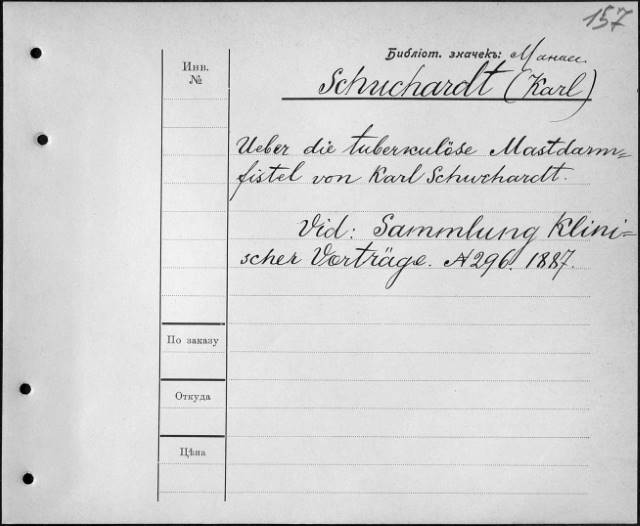 157
Библіот. значекъ: Манас.
Инв.
№
Schuchardt (Karl)
Ueber die tuberkulöse Mastdarm=
fistel von Karl Schuchardt.
Vid: Sammlung Klini=
scher Vorträge. № 296. 1887.
По заказу
Откуда
Цѣна